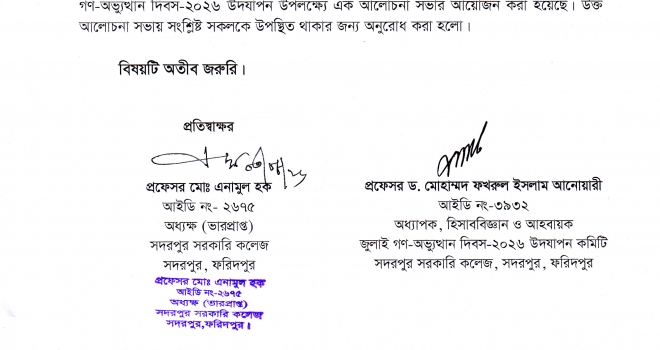 গণ-অভ্যুত্থান দিবস-২০২৬ উদযাপন উপলক্ষ্যে এক আলোচনা সভার আয়োজন করা হয়েছে। উক্ত
আলোচনা সভায় সংশ্লিষ্ট সকলকে উপস্থিত থাকার জন্য অনুরোধ করা হলো।
বিষয়টি অতীব জরুরি।
প্রতিস্বাক্ষর
প্রফেসর মোঃ এনামুল হক
আইডি নং- ২৬৭৫
অধ্যক্ষ (ভারপ্রাপ্ত)
সদরপুর সরকারি কলেজ
সদরপুর, ফরিদপুর
প্রফেসর মোঃ এনামুল হক
আইডি নং-২৬৭৫
অধ্যক্ষ (ভারপ্রাপ্ত)
সদরপুর সরকারি কলেজ
সদরপুর,ফরিদপুর।
প্রফেসর ড. মোহাম্মদ ফখরুল ইসলাম আনোয়ারী
আইডি নং-৩৯৩২
অধ্যাপক, হিসাববিজ্ঞান ও আহবায়ক
জুলাই গণ-অভ্যুত্থান দিবস-২০২৬ উদযাপন কমিটি
সদরপুর সরকারি কলেজ, সদরপুর, ফরিদপুর